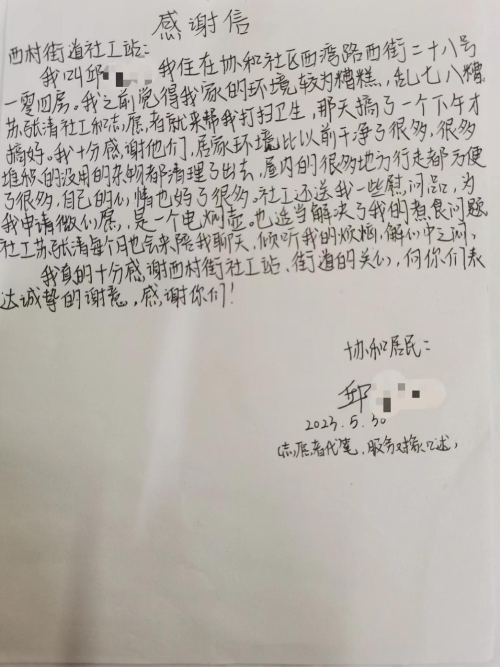 感谢信
西村街道社工站：
我叫邱 我住在协和社区西湾路西街二十八号
一零四房。我之前觉得我家的环境较为糟糕，乱七八糟
苏、张清社工和志愿者就来帮我打扫卫生，那天搞了一个下午才
搞好。我十分感谢他们，居家环境比以前干净了很多，很多
堆放的没用的杂物都清理了出去，屋内的很多地方行走都方便
了很多，自己的心情也好了很多。社工还送我一些慰问品，为
我申请微心愿，是一个电炖壶。也适当解决了我的煮食问题
社工苏、张清每个月也会来陪我聊天，倾听我的烦恼，解心中之闷。
我真的十分感谢西村街社工站、街道的关心，向你们表
达诚挚的谢意，感谢你们！
协和居民：
邱
2023.5.30
（志愿者代笔，服务对象口述）